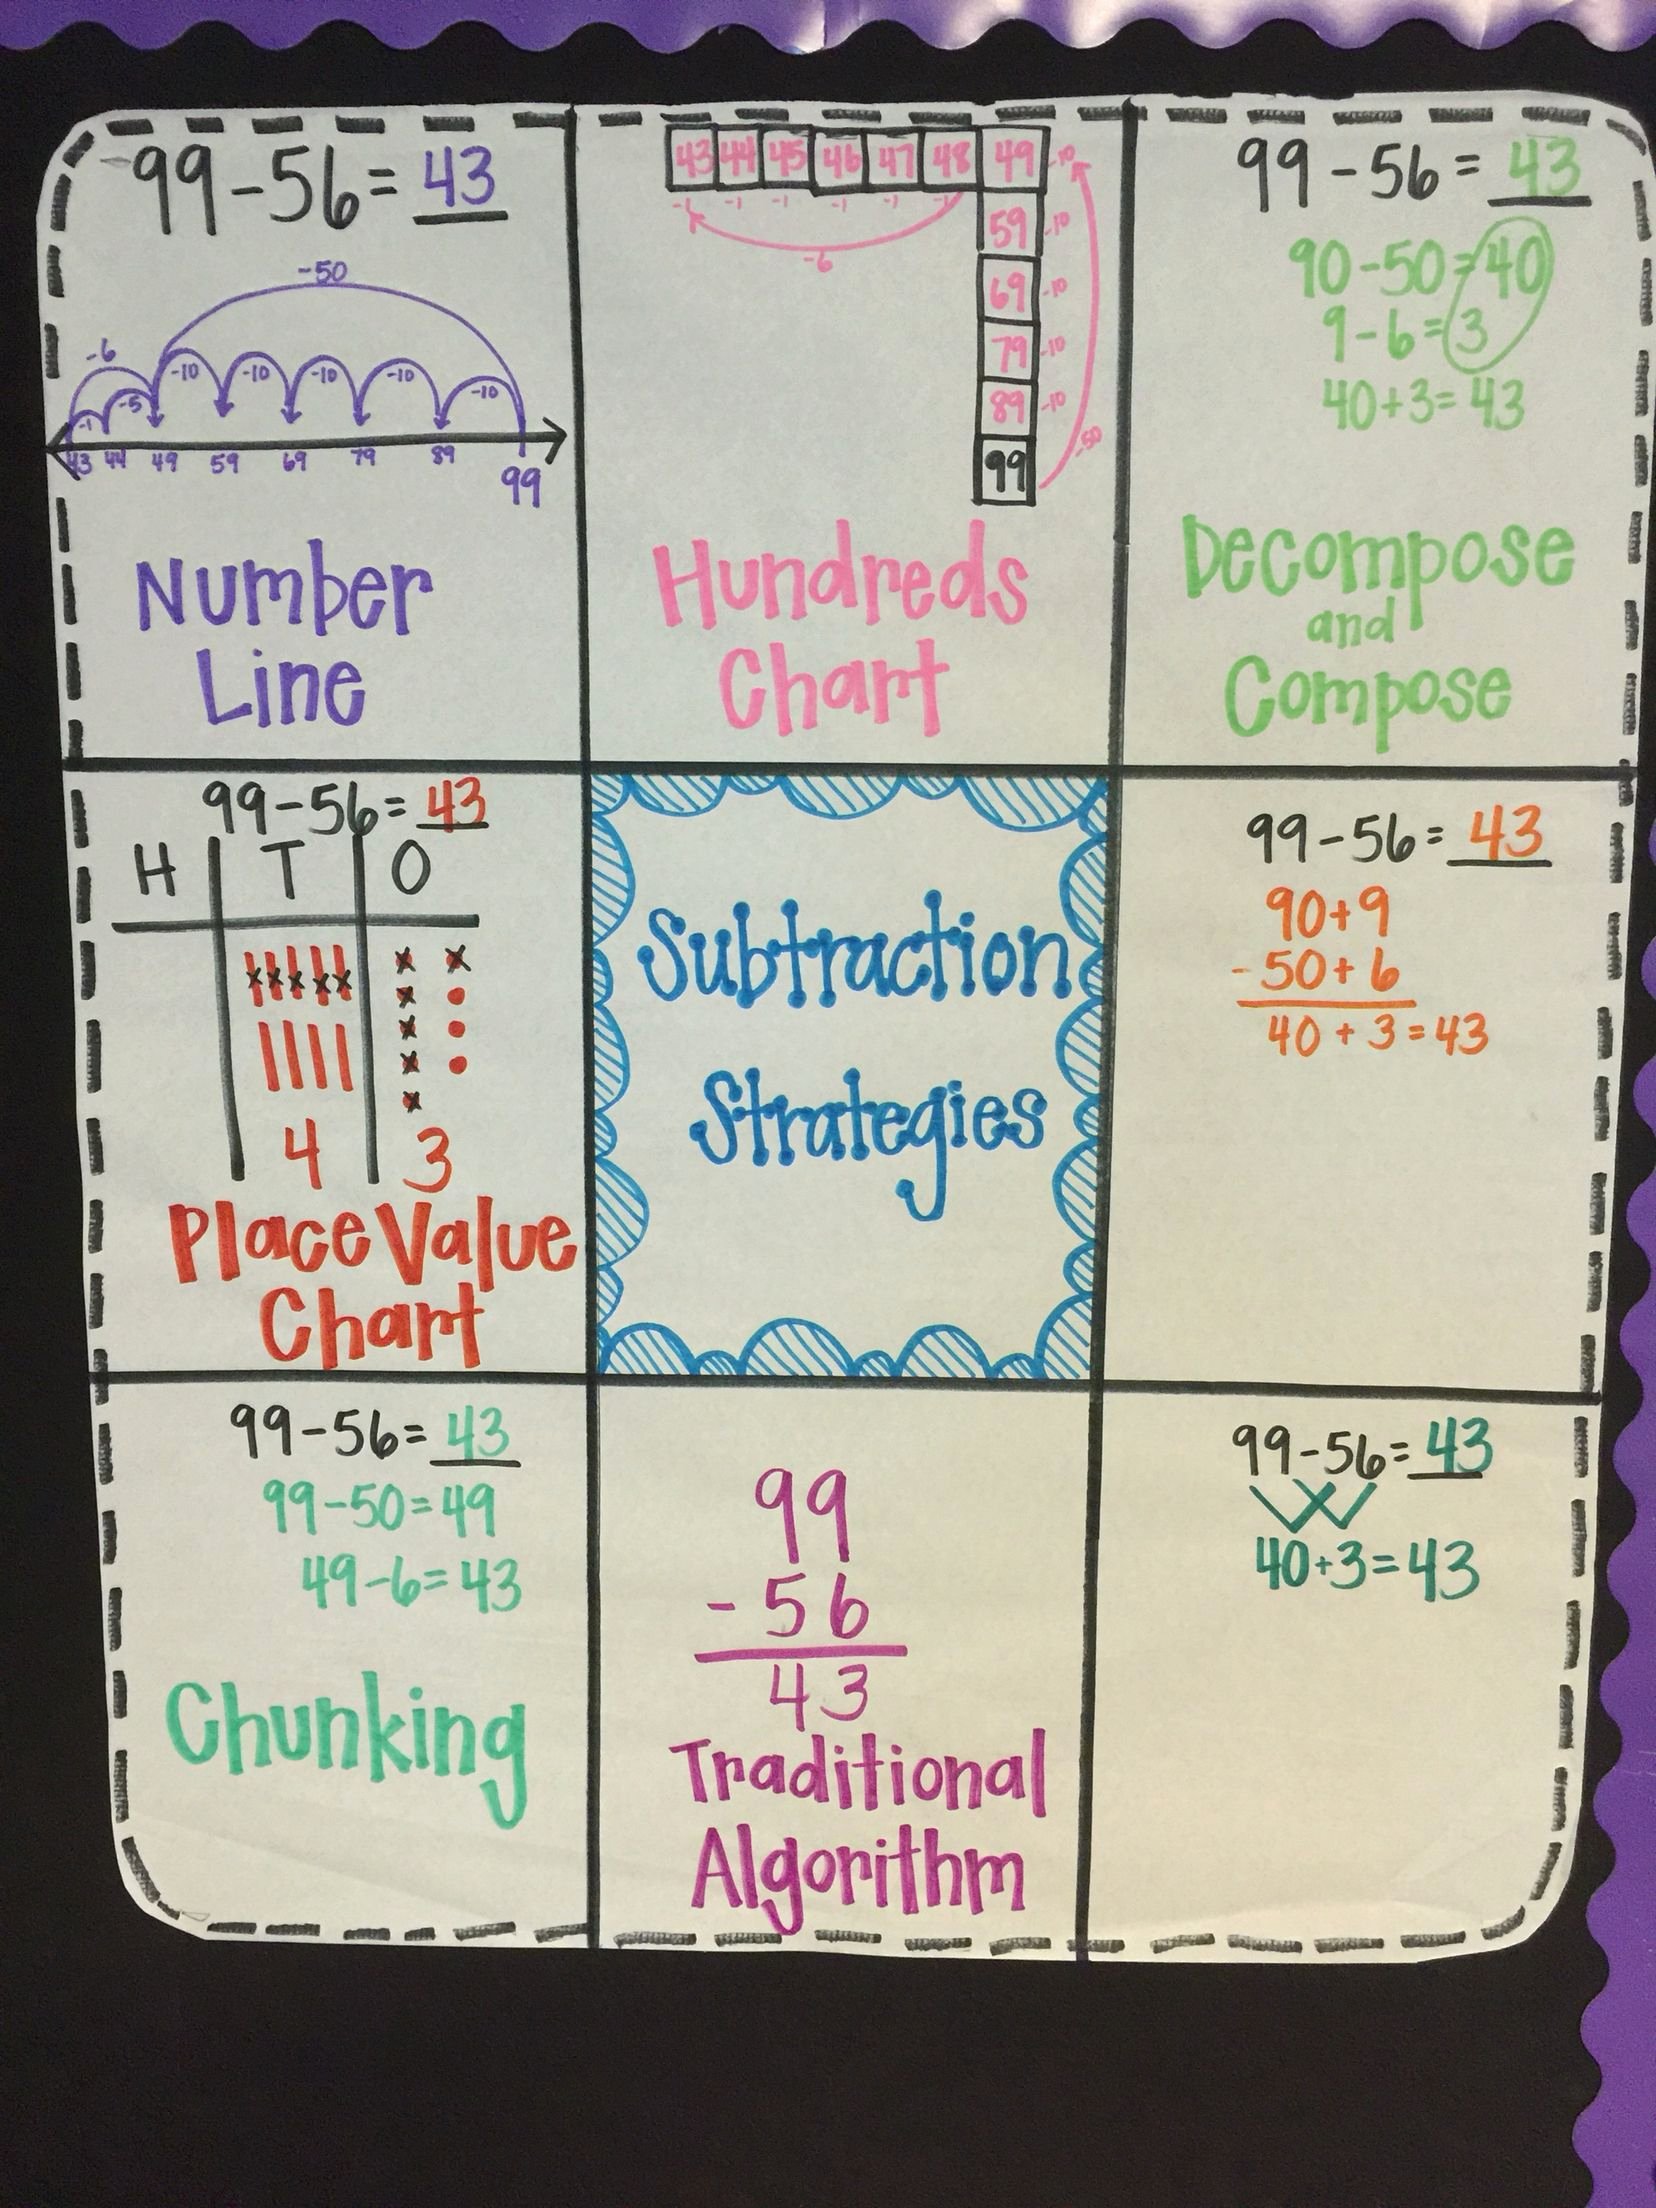 99-56=43
-50
-6
-10 -10 -10 -10 -10
-1 -5
43 44 49 59 69 79 89 99
Number
Line
43 44 45 46 47 48 49 -10
-1 -1 -1 -1 -1 -1
-6
59 -10
69 -10
79 -10
89 -10
-50
99
Hundreds
Chart
99-56=43
90-50=40
9-6=3
40+3=43
Decompose
and
Compose
99-56=43
H T O
4 3
Place Value
Chart
Subtraction
Strategies
99-56=43
90+9
-50+6
40+3=43
99-56=43
99-50=49
49-6=43
Chunking
99
-56
43
Traditional
Algorithm
99-56=43
40+3=43